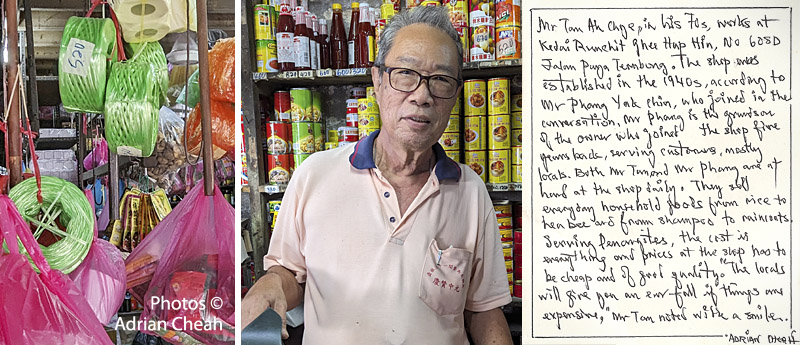 520
Photos ©
Adrian Cheah
Mr Tan Ah Chye, in his 70s, works at
Kedai Runchit Ghee Hup Hin, No 605D
Jalan Paya Terubong. The shop was
established in the 1940s, according to
Mr Phang Yak Chin, who joined in the
conversation. Mr Phang is the grandson
of the owner who joined the shop five
years back, serving customers, mostly
locals. Both Mr Tan and Mr Phang are at
hand at the shop daily. They sell
everyday household goods from rice to
han bee and from shampoo to raincoats.
Serving Penangites, the cost is
everything and prices at the shop has to
be cheap and of good quality. "The locals
will give you an ear full if things are
expensive," Mr Tan noted with a smile.
ADRIAN CHEAH